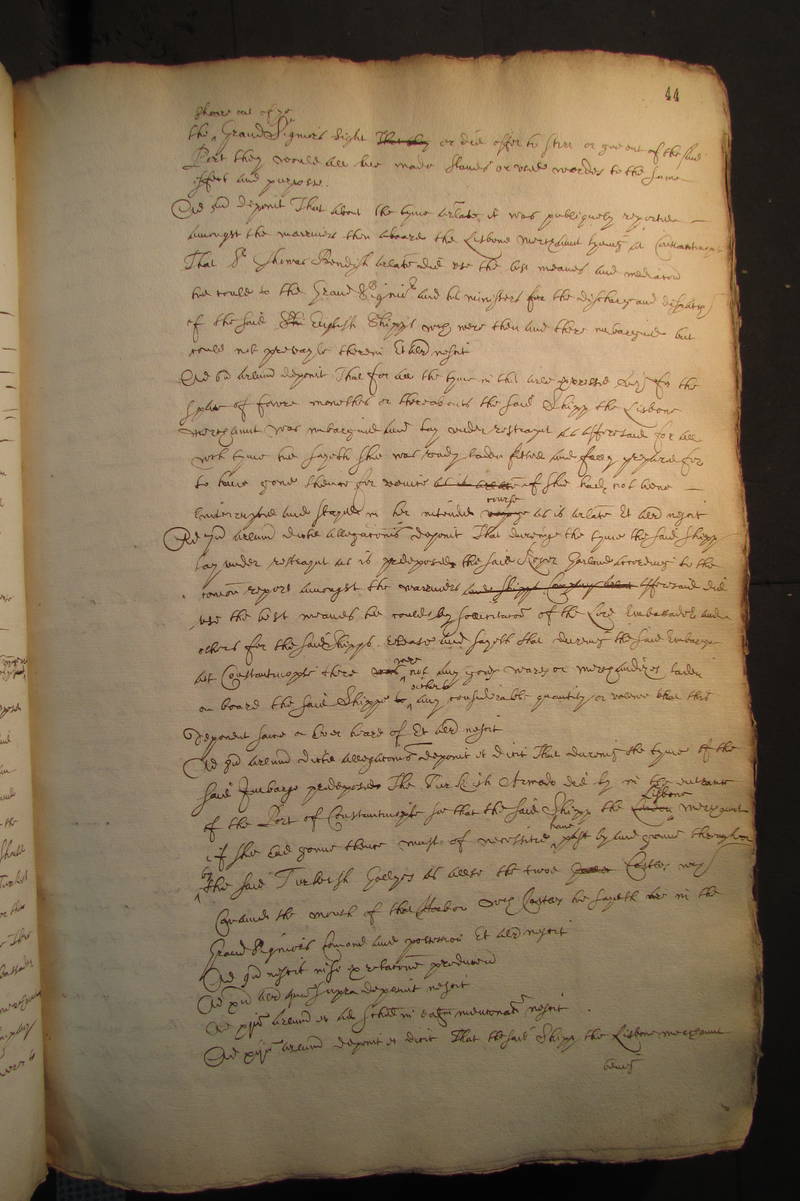 44
shoote out of ye
the Grand Signiors sight That they or did offer to stirr or goe out of the said
Port they would all bee made slaves or used wordes to the same
effect and purpose.
Ad 5um deponit That about the tyme arlate it was publiquely reported
amongst the marriners then aboard the Lisbone Merchaunt lyeing at Constantinople
That Sr Thomas Bendish arlate did use the best meanes and mediacon
hee could to the Grand Signior and his ministers for the discharge and
of the said English Shipps wch were then and there imbargued but
could not prevayle therein Et alr nescit
Ad 6um arlum deponit That for all the tyme in this arle expressed for the
space of fowre monethes or thereabouts the said Shipp the Lisbone
Merchaunt was imbargued and lay under restraynt as aforesaid for all
wch tyme hee sayeth she was ready laden fitted and fully prepared for
to have gone thence for Venice as is arlate if she had not bene
interrupted and stopped in her intended voyage course as is arlate Et alr nescit
Ad 7um arlum dictae allegationis deponit That dureinge the tyme the said Shipp
lay under restraynt as is predeposed the said Roger Garland according to the
comon report amongst the marriners and Shipps Company aforesaid did
use the best meanes hee could by sollicitacon of the Lord Embassador and
others for the said Shipps release and sayeth that during the said Embargo
att Constantinople there were not any goods wares or merchandizes laden
on board the said Shippe to either any considerable quantity or valewe that this
deponent sawe or ever heard of Et alr nescit
Ad 8um arlum dictae allegationis deponit et dicit That dureing the tyme of the
said Imbargo predeposed The Turkish Armado did ly in the entrance
of the Port of Constantinople soe that the said Shipp the Lisbone Merchant
if she had gonne thence must of necessitie have past by and gonne through
by the said Turkish Gallyes as alsoe the twoe Castles wch
Comaund the mouth of that Harbor wch Castles hee sayeth are in the
Grand Signiors comand and possession Et alr nescit
Ad 9um nescit nisi ex relatione predeposita
Ad xum alr quam supra deponit nescit
Ad xjum arlum et ad schedulam in eadem mentionat nescit
Ad xijum arlum deponit et dicit That the said Shipp the Lisbone Merchaunt
being